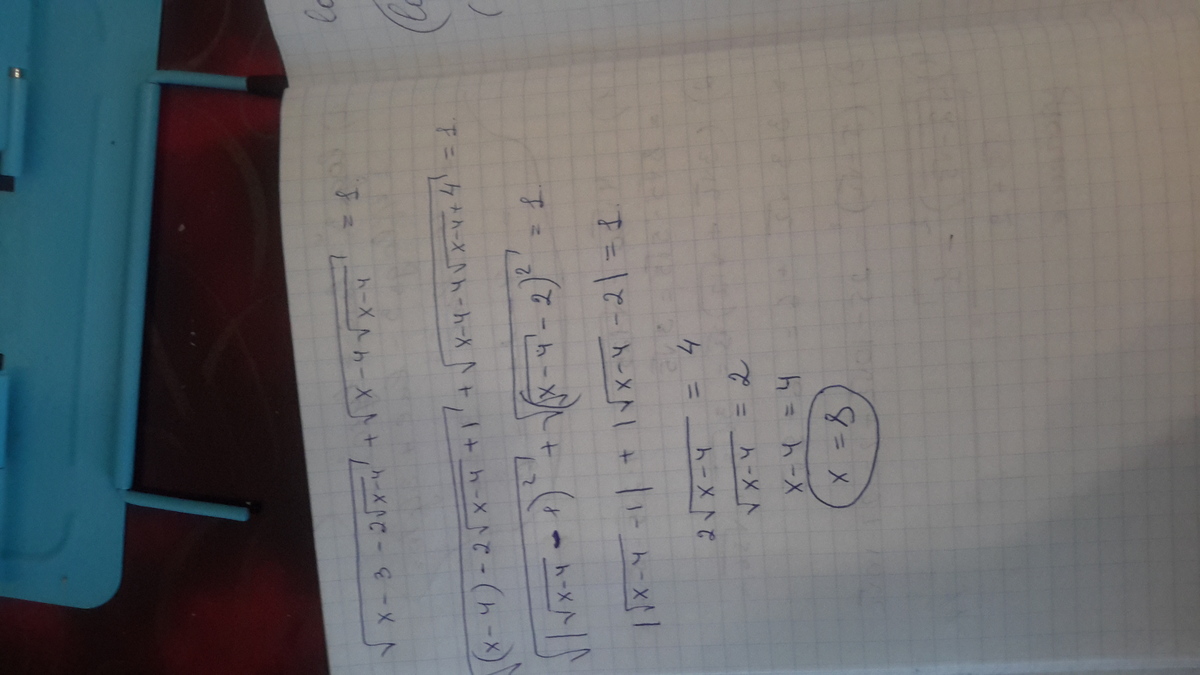 √(x-3-2√(x-4)) + √(x-4√(x-4)) = 1.
√((x-4)-2√(x-4)+1) + √(x-4-4√(x-4)+4) = 1.
√(|√(x-4)-1)²) + √((√(x-4)-2)²) = 1.
|√(x-4)-1| + |√(x-4)-2| = 1.
2√(x-4) = 4
√(x-4) = 2
x-4 = 4
x = 8